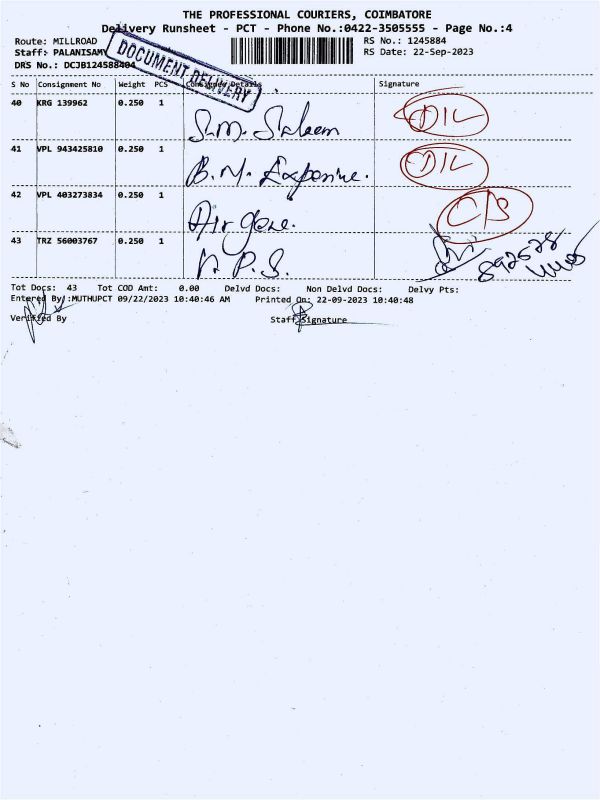 THE PROFESSIONAL COURIERS, COIMBATORE
Delivery Runsheet - PCT - Phone No.:0422-3505555 - Page No.:4
Route: MILLROAD RS No.: 1245884
Staff: PALANISAMY RS Date: 22-Sep-2023
DRS No.: DCJB124588404
DOCUMENT DELIVERY
S No Consignment No Weight PCS Consignee Details Signature
40 KRG 139962 0.250 1 S.M. Saleem D/L
41 VPL 943425810 0.250 1 B.M. D/L
42 VPL 403273834 0.250 1 Air C/S
43 TRZ 56003767 0.250 1 P.S.
Tot Docs: 43 Tot COD Amt: 0.00 Delvd Docs: Non Delvd Docs: Delvy Pts:
Entered By :MUTHUPCT 09/22/2023 10:40:46 AM Printed On: 22-09-2023 10:40:48
Verified By Staff Signature